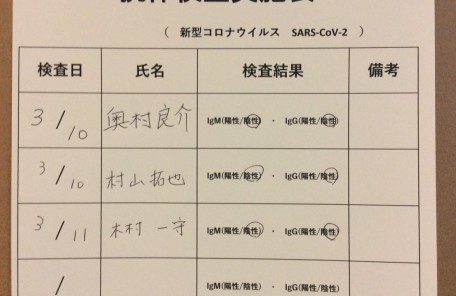 抗体検査実施表
( 新型コロナウイルス SARS-CoV-2 )
検査日 氏名 検査結果 備考
3/10 奥村良介 IgM(陽性/陰性) ・ IgG(陽性/陰性)
3/10 村山拓也 IgM(陽性/陰性) ・ IgG(陽性/陰性)
3/11 木村一守 IgM(陽性/陰性) ・ IgG(陽性/陰性)
/ IgM(陽性/陰性) ・ IgG(陽性/陰性)